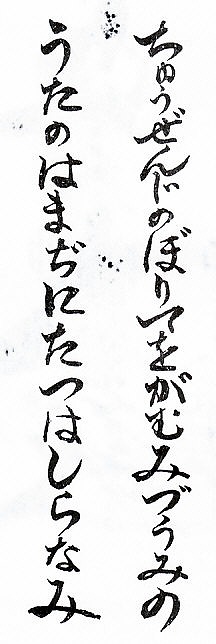 ちゆうぜんじのぼりてをがむみづうみの
うたのはまぢにたつはしらなみ